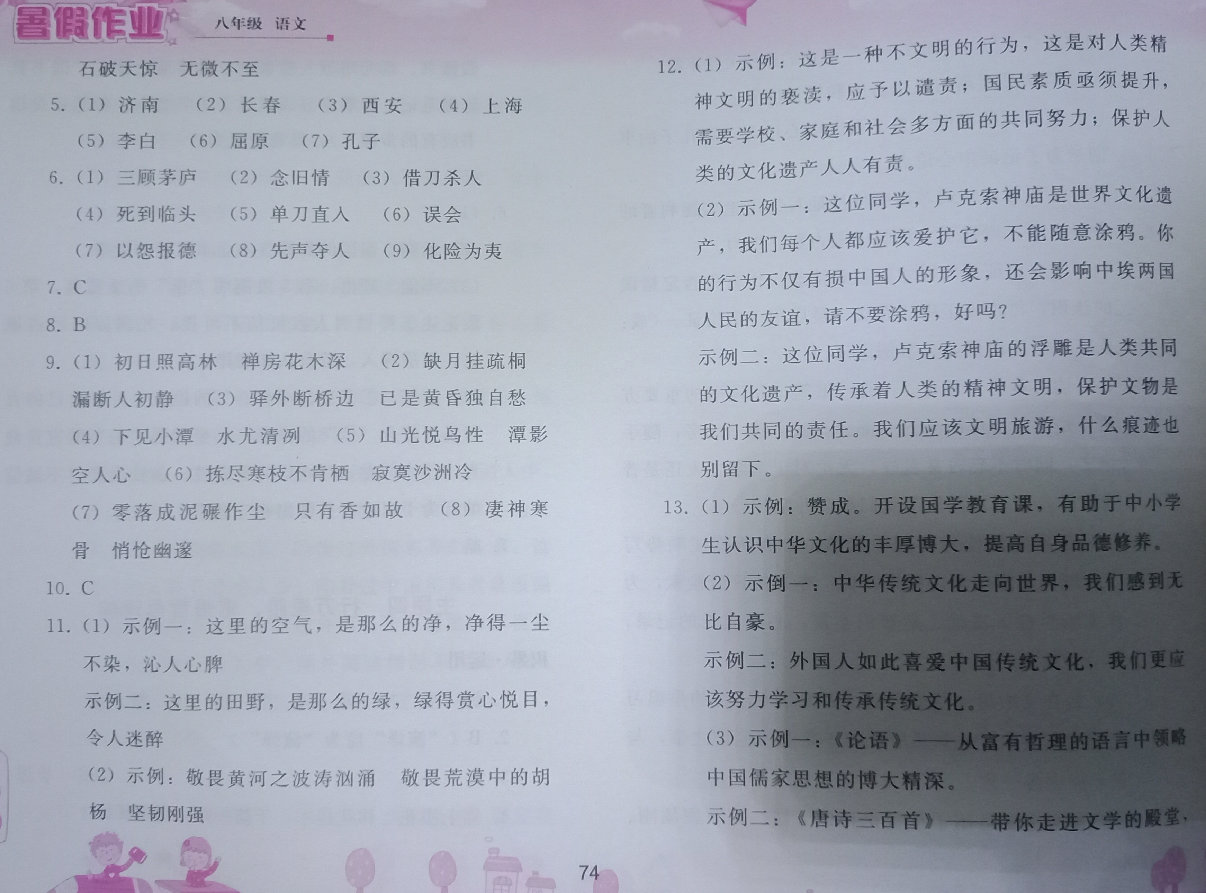 暑假作业
八年级 语文
石破天惊 无微不至
5．（1）济南 （2）长春 （3）西安 （4）上海
（5）李白 （6）屈原 （7）孔子
6．（1）三顾茅庐 （2）念旧情 （3）借刀杀人
（4）死到临头 （5）单刀直入 （6）误会
（7）以怨报德 （8）先声夺人 （9）化险为夷
7．C
8．B
9．（1）初日照高林 禅房花木深 （2）缺月挂疏桐
漏断人初静 （3）驿外断桥边 已是黄昏独自愁
（4）下见小潭 水尤清冽 （5）山光悦鸟性 潭影
空人心 （6）拣尽寒枝不肯栖 寂寞沙洲冷
（7）零落成泥碾作尘 只有香如故 （8）凄神寒
骨 悄怆幽邃
10．C
11．（1）示例一：这里的空气，是那么的净，净得一尘
不染，沁人心脾
示例二：这里的田野，是那么的绿，绿得赏心悦目，
令人迷醉
（2）示例：敬畏黄河之波涛汹涌 敬畏荒漠中的胡
杨 坚韧刚强
12．（1）示例：这是一种不文明的行为，这是对人类精
神文明的亵渎，应予以谴责；国民素质亟须提升，
需要学校、家庭和社会多方面的共同努力；保护人
类的文化遗产人人有责。
（2）示例一：这位同学，卢克索神庙是世界文化遗
产，我们每个人都应该爱护它，不能随意涂鸦。你
的行为不仅有损中国人的形象，还会影响中埃两国
人民的友谊，请不要涂鸦，好吗？
示例二：这位同学，卢克索神庙的浮雕是人类共同
的文化遗产，传承着人类的精神文明，保护文物是
我们共同的责任。我们应该文明旅游，什么痕迹也
别留下。
13．（1）示例：赞成。开设国学教育课，有助于中小学
生认识中华文化的丰厚博大，提高自身品德修养。
（2）示倒一：中华传统文化走向世界，我们感到无
比自豪。
示例二：外国人如此喜爱中国传统文化，我们更应
该努力学习和传承传统文化。
（3）示例一：《论语》——从富有哲理的语言中领略
中国儒家思想的博大精深。
示例二：《唐诗三百首》——带你走进文学的殿堂，
74